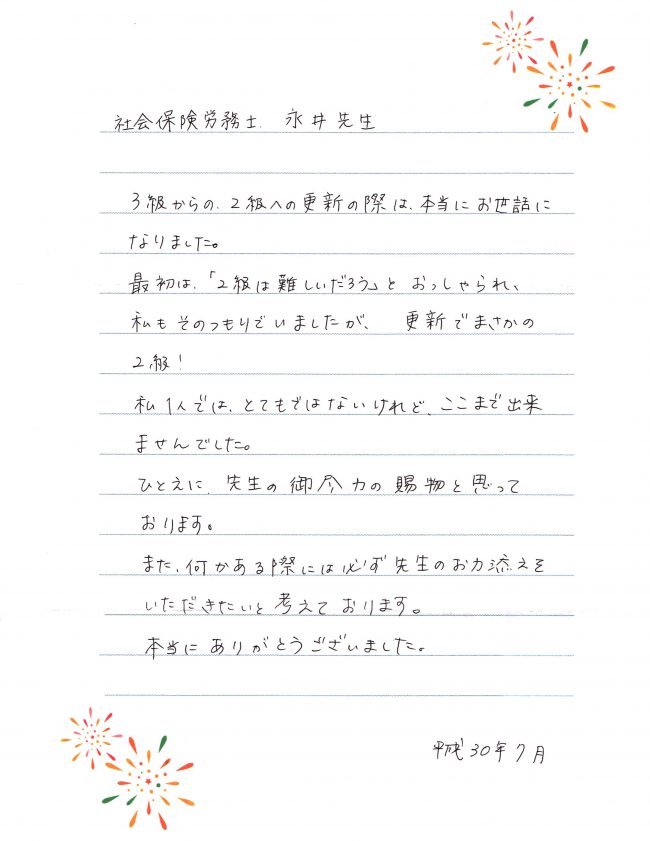 社会保険労務士 永井先生
3級からの、2級への更新の際は、本当にお世話に
なりました。
最初は、「2級は難しいだろう」と おっしゃられ、
私もそのつもりでいましたが、 更新でまさかの
2級!
私1人では、とてもではないけれど、ここまで出来
ませんでした。
ひとえに、先生の御尽力の賜物と思って
おります。
また、何かある際には必ず先生のお力添えを
いただきたいと考えております。
本当にありがとうございました。
平成30年7月